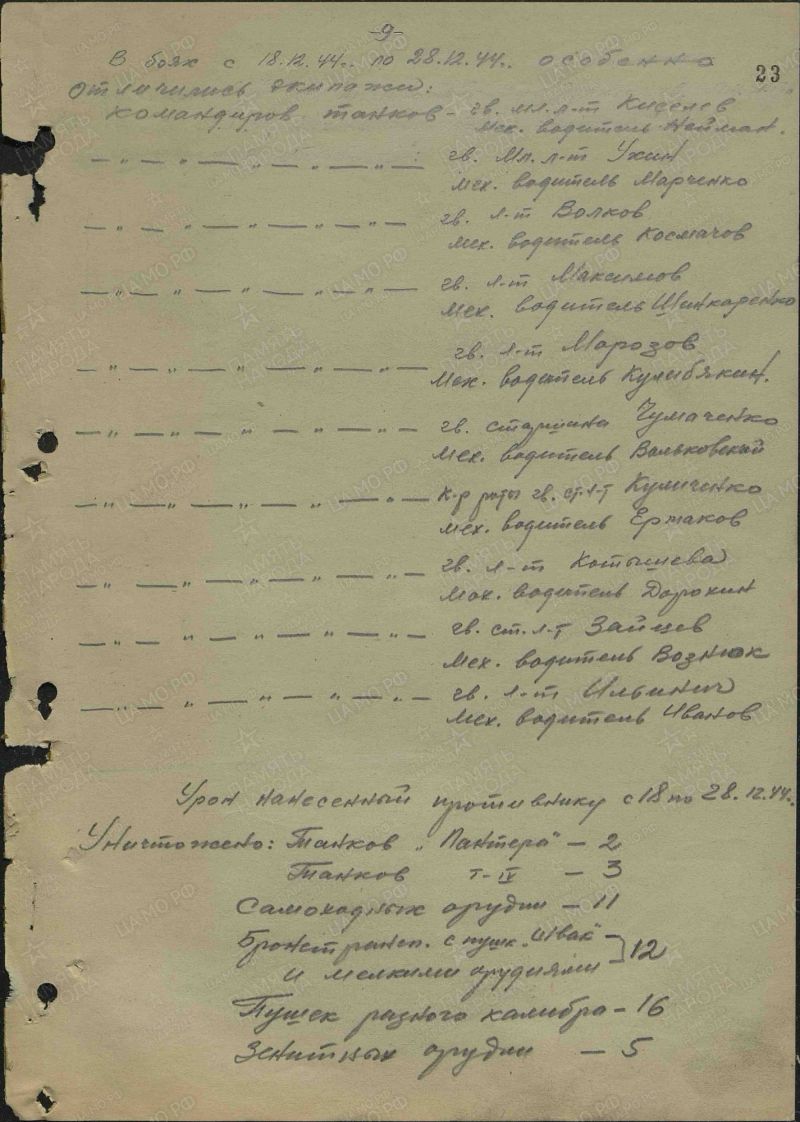 -9-
23
В боях с 18.12.44г. по 28.12.44г. особенно
отличились экипажи:
командиров танков - гв. мл. л-т Киселев
мех. водитель Нейман.
— „ — „ — „ — „ — гв. мл. л-т Ухин
мех. водитель Марченко
— „ — „ — „ — „ — гв. л-т Волков
мех. водитель Космачов
— „ — „ — „ — „ — гв. л-т Максимов
мех. водитель Шинкаренко
— „ — „ — „ — „ — гв. л-т Морозов
мех. водитель Кулибякин.
— „ — „ — „ — „ — гв. старшина Чумаченко
мех. водитель Вальковский
— „ — „ — „ — „ — к-р роты гв. ст. л-т Куличенко
мех. водитель Ермаков
— „ — „ — „ — „ — гв. л-т Котышева
мех. водитель Дорохин
— „ — „ — „ — „ — гв. ст. л-т Зайцев
мех. водитель Вознюк
— „ — „ — „ — „ — гв. л-т Ильинич
мех. водитель Иванов
Урон нанесенный противнику с 18 по 28.12.44г.
Уничтожено: Танков „Пантера" - 2
Танков Т-IV - 3
Самоходных орудии - 11
Бронетрансп. с пушк. „Швак" -
и мелкими орудиями 12
Пушек разного калибра - 16
Зенитных орудии - 5